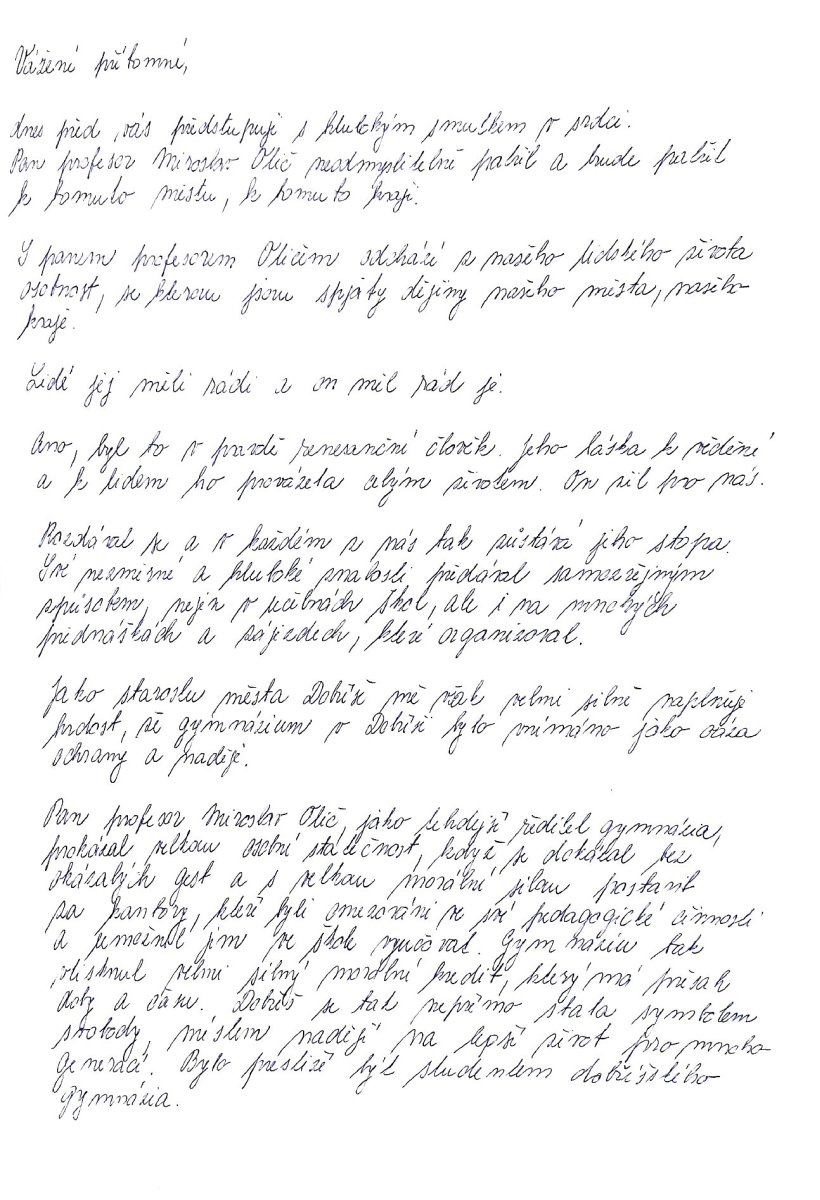 Vážení přítomní,
dnes před vás předstupuji s hlubokým smutkem v srdci.
Pan profesor Miroslav Olič neodmyslitelně patřil a bude patřit
k tomuto městu, k tomuto kraji.
S panem profesorem Oličem odchází z našeho lidského života
osobnost, se kterou jsou spjaty dějiny našeho města, našeho
kraje.
Lidé jej měli rádi a on měl rád je.
Ano, byl to v pravdě renesanční člověk. Jeho láska k vědění
a k lidem ho provázela celým životem. On žil pro nás.
Rozdával se a v každém z nás tak zůstává jeho stopa.
Své nezměrné a hluboké znalosti předával samozřejmým
způsobem, nejen v učebnách škol, ale i na mnohých
přednáškách a zájezdech, které organizoval.
Jako starostu města Dobříše mě však velmi silně naplňuje
hrdost, že gymnázium v Dobříši bylo vnímáno jako oáza
ochrany a naděje.
Pan profesor Miroslav Olič, jako tehdejší ředitel gymnázia,
prokázal velkou osobní statečnost, když se dokázal bez
okázalých gest a s velkou morální silou postavit
za kantory, kteří byli omezováni ve své pedagogické činnosti
a umožnil jim ve škole vyučovat. Gymnáziu tak
vtisknul velmi silný morální kredit, který má přesah
doby a času. Dobříš se tak nepřímo stala symbolem
svobody, místem naděje na lepší život pro mnoho
generací. Bylo prestiží být studentem dobříšského
gymnázia.